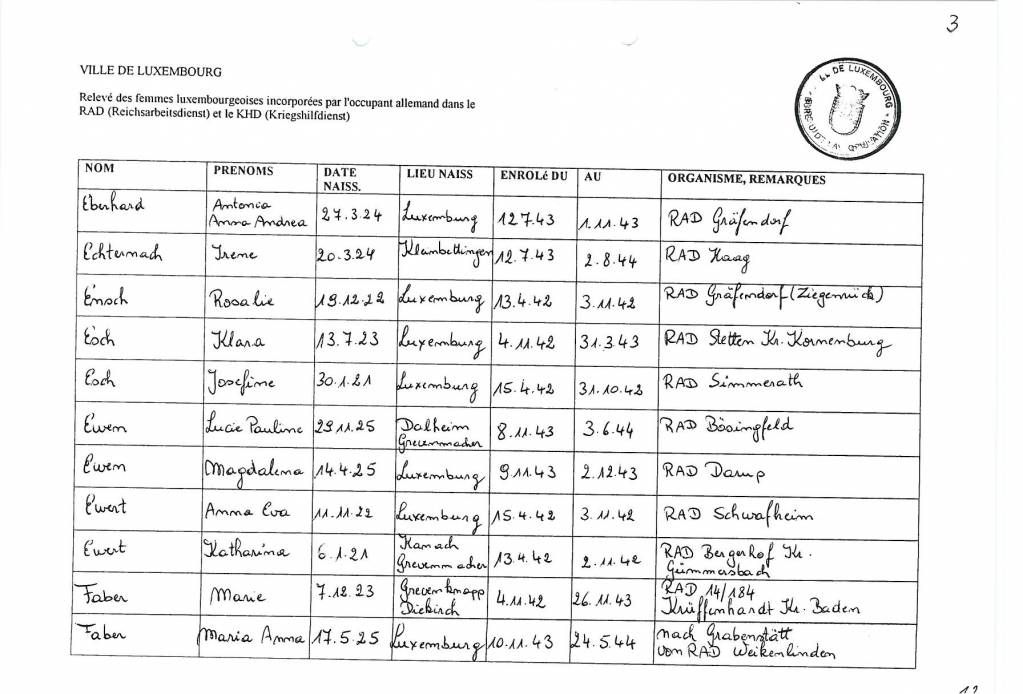 3
VILLE DE LUXEMBOURG
Relevé des femmes luxembourgeoises incorporées par l'occupant allemand dans le
RAD (Reichsarbeitsdienst) et le KHD (Kriegshilfdienst)
DE LUXEMBOURG
NOM PRENOMS DATE NAISS. LIEU NAISS ENROLé DU AU ORGANISME, REMARQUES
Eberhard Antonia Anna Andrea 27.3.24 Luxemburg 12 7.43 1.11.43 RAD Gräfendorf
Echternach Irene 20.3.24 Kleinbettingen 12.7.43 2.8.44 RAD Haag
Ensch Rosalie 19.12.22 Luxemburg 13.4.42 3.11.42 RAD Gräfendorf (Ziegenrück)
Esch Klara 13.7.23 Luxemburg 4.11.42 31.3.43 RAD Stetten Kr. Kornenburg
Esch Josefine 30.1.21 Luxemburg 15.4.42 31.10.42 RAD Simmerath
Ewen Lucie Pauline 29 11.25 Dalheim Grevenmacher 8.11.43 3.6.44 RAD Bösingfeld
Ewen Magdalena 14.4.25 Luxemburg 9.11.43 2.12.43 RAD Damp
Ewert Anna Eva 11.11.22 Luxemburg 15.4.42 3.11.42 RAD Schwafheim
Ewert Katharina 6.1.21 Kanach Grevenmacher 13.4.42 2.11.42 RAD Bergerhof Kr. Gümmersbach
Faber Marie 7.12.23 Grevenknapp Diekirch 4.11.42 26.11.43 RAD 14/184 Krüffenhardt Kr. Baden
Faber Maria Anna 17.5.25 Luxemburg 10.11.43 24.5.44 nach Grabenstätt von RAD Weikenlinden